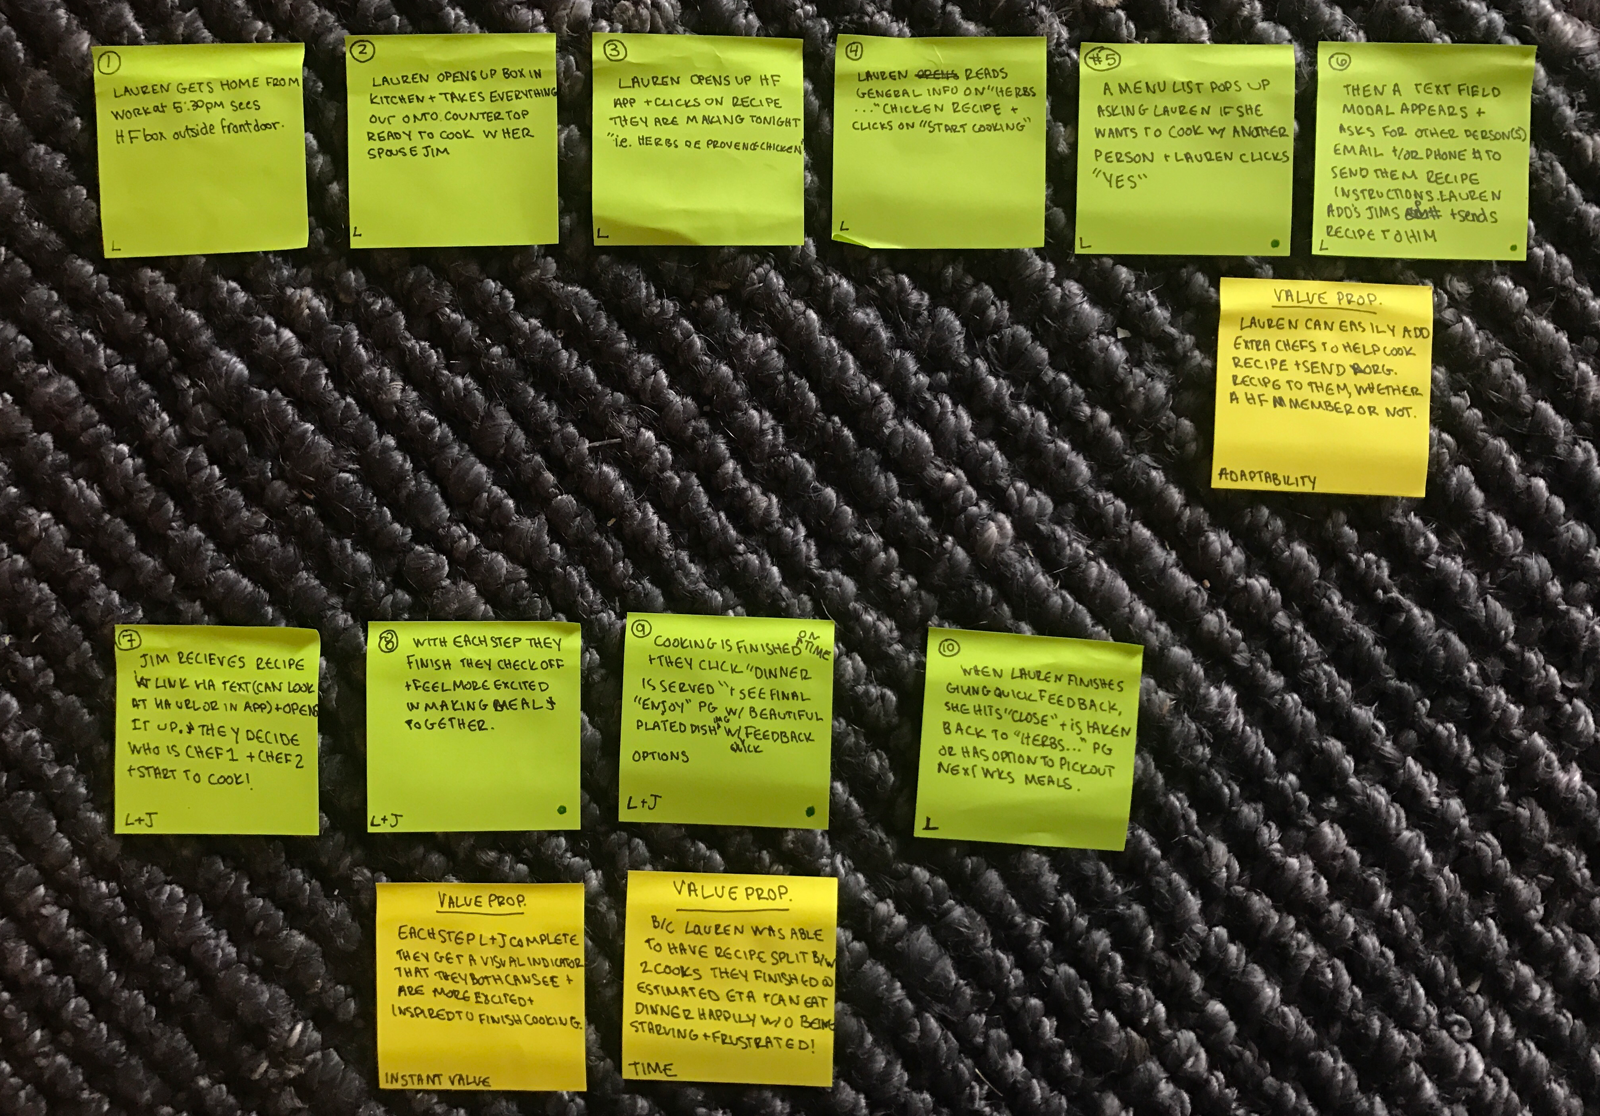 1
LAUREN GETS HOME FROM
WORK at 5:30pm SEES
HF box outside front door.
L
2
LAUREN OPENS UP BOX IN
KITCHEN + TAKES EVERYTHING
OUT ONTO COUNTERTOP
READY TO COOK W HER
SPOUSE JIM
L
3
LAUREN OPENS UP HF
APP + CLICKS ON RECIPE
THEY ARE MAKING TONIGHT
"i.e. HERBS DE PROVENCE CHICKEN"
L
4
LAUREN OPENS READS
GENERAL INFO ON "HERBS
..." CHICKEN RECIPE +
CLICKS ON "START COOKING"
L
#5
A MENU LIST POPS UP
ASKING LAUREN IF SHE
WANTS TO COOK W/ ANOTHER
PERSON + LAUREN CLICKS
"YES"
L
6
THEN A TEXT FIELD
MODAL APPEARS +
ASKS FOR OTHER PERSON(S)
EMAIL +/OR PHONE # TO
SEND THEM RECIPE
INSTRUCTIONS. LAUREN
ADD'S JIMS + sends
RECIPE TO HIM
L
VALUE PROP.
LAUREN CAN EASILY ADD
EXTRA CHEFS TO HELP COOK
RECIPE + SEND ORG.
RECIPE TO THEM, WHETHER
A HF MEMBER OR NOT.
ADAPTABILITY
7
JIM RECIEVES RECIPE
LINK VIA TEXT (CAN LOOK
AT VIA URL OR IN APP) + OPENS
IT UP. THEY DECIDE
WHO IS CHEF 1 + CHEF 2
+ START TO COOK!
L+J
8
WITH EACH STEP THEY
FINISH THEY CHECK OFF
+ FEEL MORE EXCITED
IN MAKING MEALS
TOGETHER.
L+J
9
COOKING IS FINISHED ON TIME
+ THEY CLICK "DINNER
IS SERVED" + SEE FINAL
"ENJOY" PG W/ BEAUTIFUL
PLATED DISH W/ QUICK FEEDBACK
OPTIONS
L+J
10
WHEN LAUREN FINISHES
GIVING QUICK FEEDBACK,
SHE HITS "CLOSE" + IS TAKEN
BACK TO "HERBS..." PG
OR HAS OPTION TO PICK OUT
NEXT WKS MEALS.
L
VALUE PROP.
EACH STEP L+J COMPLETE
THEY GET A VISUAL INDICATOR
THAT THEY BOTH CAN SEE +
ARE MORE EXCITED +
INSPIRED TO FINISH COOKING.
INSTANT VALUE
VALUE PROP.
B/C LAUREN WAS ABLE
TO HAVE RECIPE SPLIT B/W
2 COOKS THEY FINISHED @
ESTIMATED ETA + CAN EAT
DINNER HAPPILY W/O BEING
STARVING + FRUSTRATED!
TIME